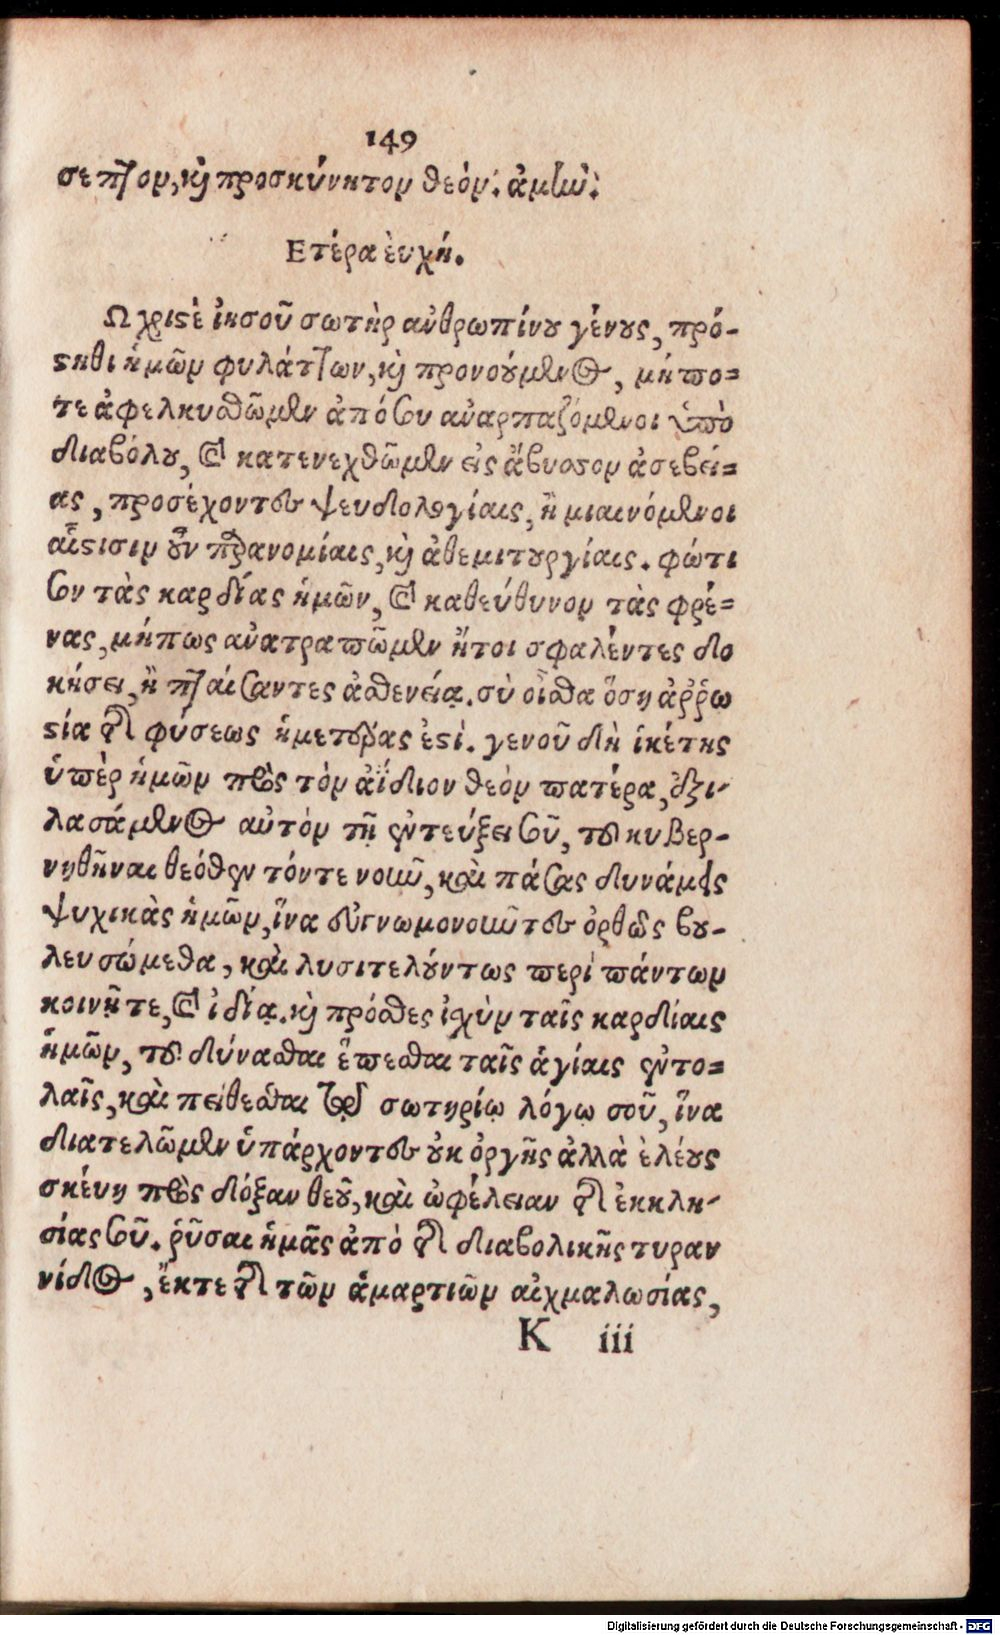 149
σεπτον, καὶ προσκύνητον θεόν. ἀμὴν.
Ετέρα ἐυχή.
Ω χριστὲ ἰησοῦ σωτὴρ ἀνθρωπίνου γένους, πρό-
στηθι ἡμῶν φυλάττων, καὶ προνούμενος, μήπο-
τε ἀφελκυσθῶμεν ἀπό σου ἀναρπαζόμενοι ὑπὸ
διαβόλου, καὶ κατενεχθῶμεν εἰς ἄβυσσον ἀσεβεί-
ας, προσέχοντες ψευδολογίαις, ἢ μιαινόμενοι
αἷστισιν οὖν παρανομίαις, καὶ ἀθεμιτουργίαις. φώτι
σον τὰς καρδίας ἡμῶν, καὶ καθεύθυνον τὰς φρέ-
νας, μήπως ἀνατραπῶμεν ἤτοι σφαλέντες δο
κήσει, ἢ πταίσαντες ἀσθενείᾳ. σὺ οἶσθα ὅση ἀῤῥω
στία τῆς φύσεως ἡμετέρας ἐστὶ. γενοῦ δὴ ἱκέτης
ὑπὲρ ἡμῶν πρὸς τὸν ἀΐδιον θεὸν πατέρα, ἐξι-
λασάμενος αὐτὸν τῇ ἐντεύξει σοῦ, τοῦ κυβερ-
νηθῆναι θεόθεν τόντε νοῦν, καὶ πάσας δυνάμεις
ψυχικὰς ἡμῶν, ἵνα εὐγνωμονοῦντες ὀρθῶς βου-
λευσώμεθα, καὶ λυσιτελούντως περὶ πάντων
κοινῇτε, καὶ ἰδίᾳ. καὶ πρόσθες ἰσχὺν ταῖς καρδίαις
ἡμῶν, τοῦ δύνασθαι ἕπεσθαι ταῖς ἁγίαις ἐντο-
λαῖς, καὶ πείθεσθαι τῷ σωτηρίῳ λόγῳ σοῦ, ἵνα
διατελῶμεν ὑπάρχοντες οὐκ ὀργῆς ἀλλὰ ἐλέους
σκέυη πρὸς δόξαν θεοῦ, καὶ ὠφέλειαν τῆς ἐκκλη-
σίας σοῦ. ῥῦσαι ἡμᾶς ἀπὸ τῆς διαβολικῆς τυραν
νίδος, ἔκτε τῆς τῶν ἁμαρτιῶν αἰχμαλωσίας,
K iii
Digitalisierung gefördert durch die Deutsche Forschungsgemeinschaft - DFG